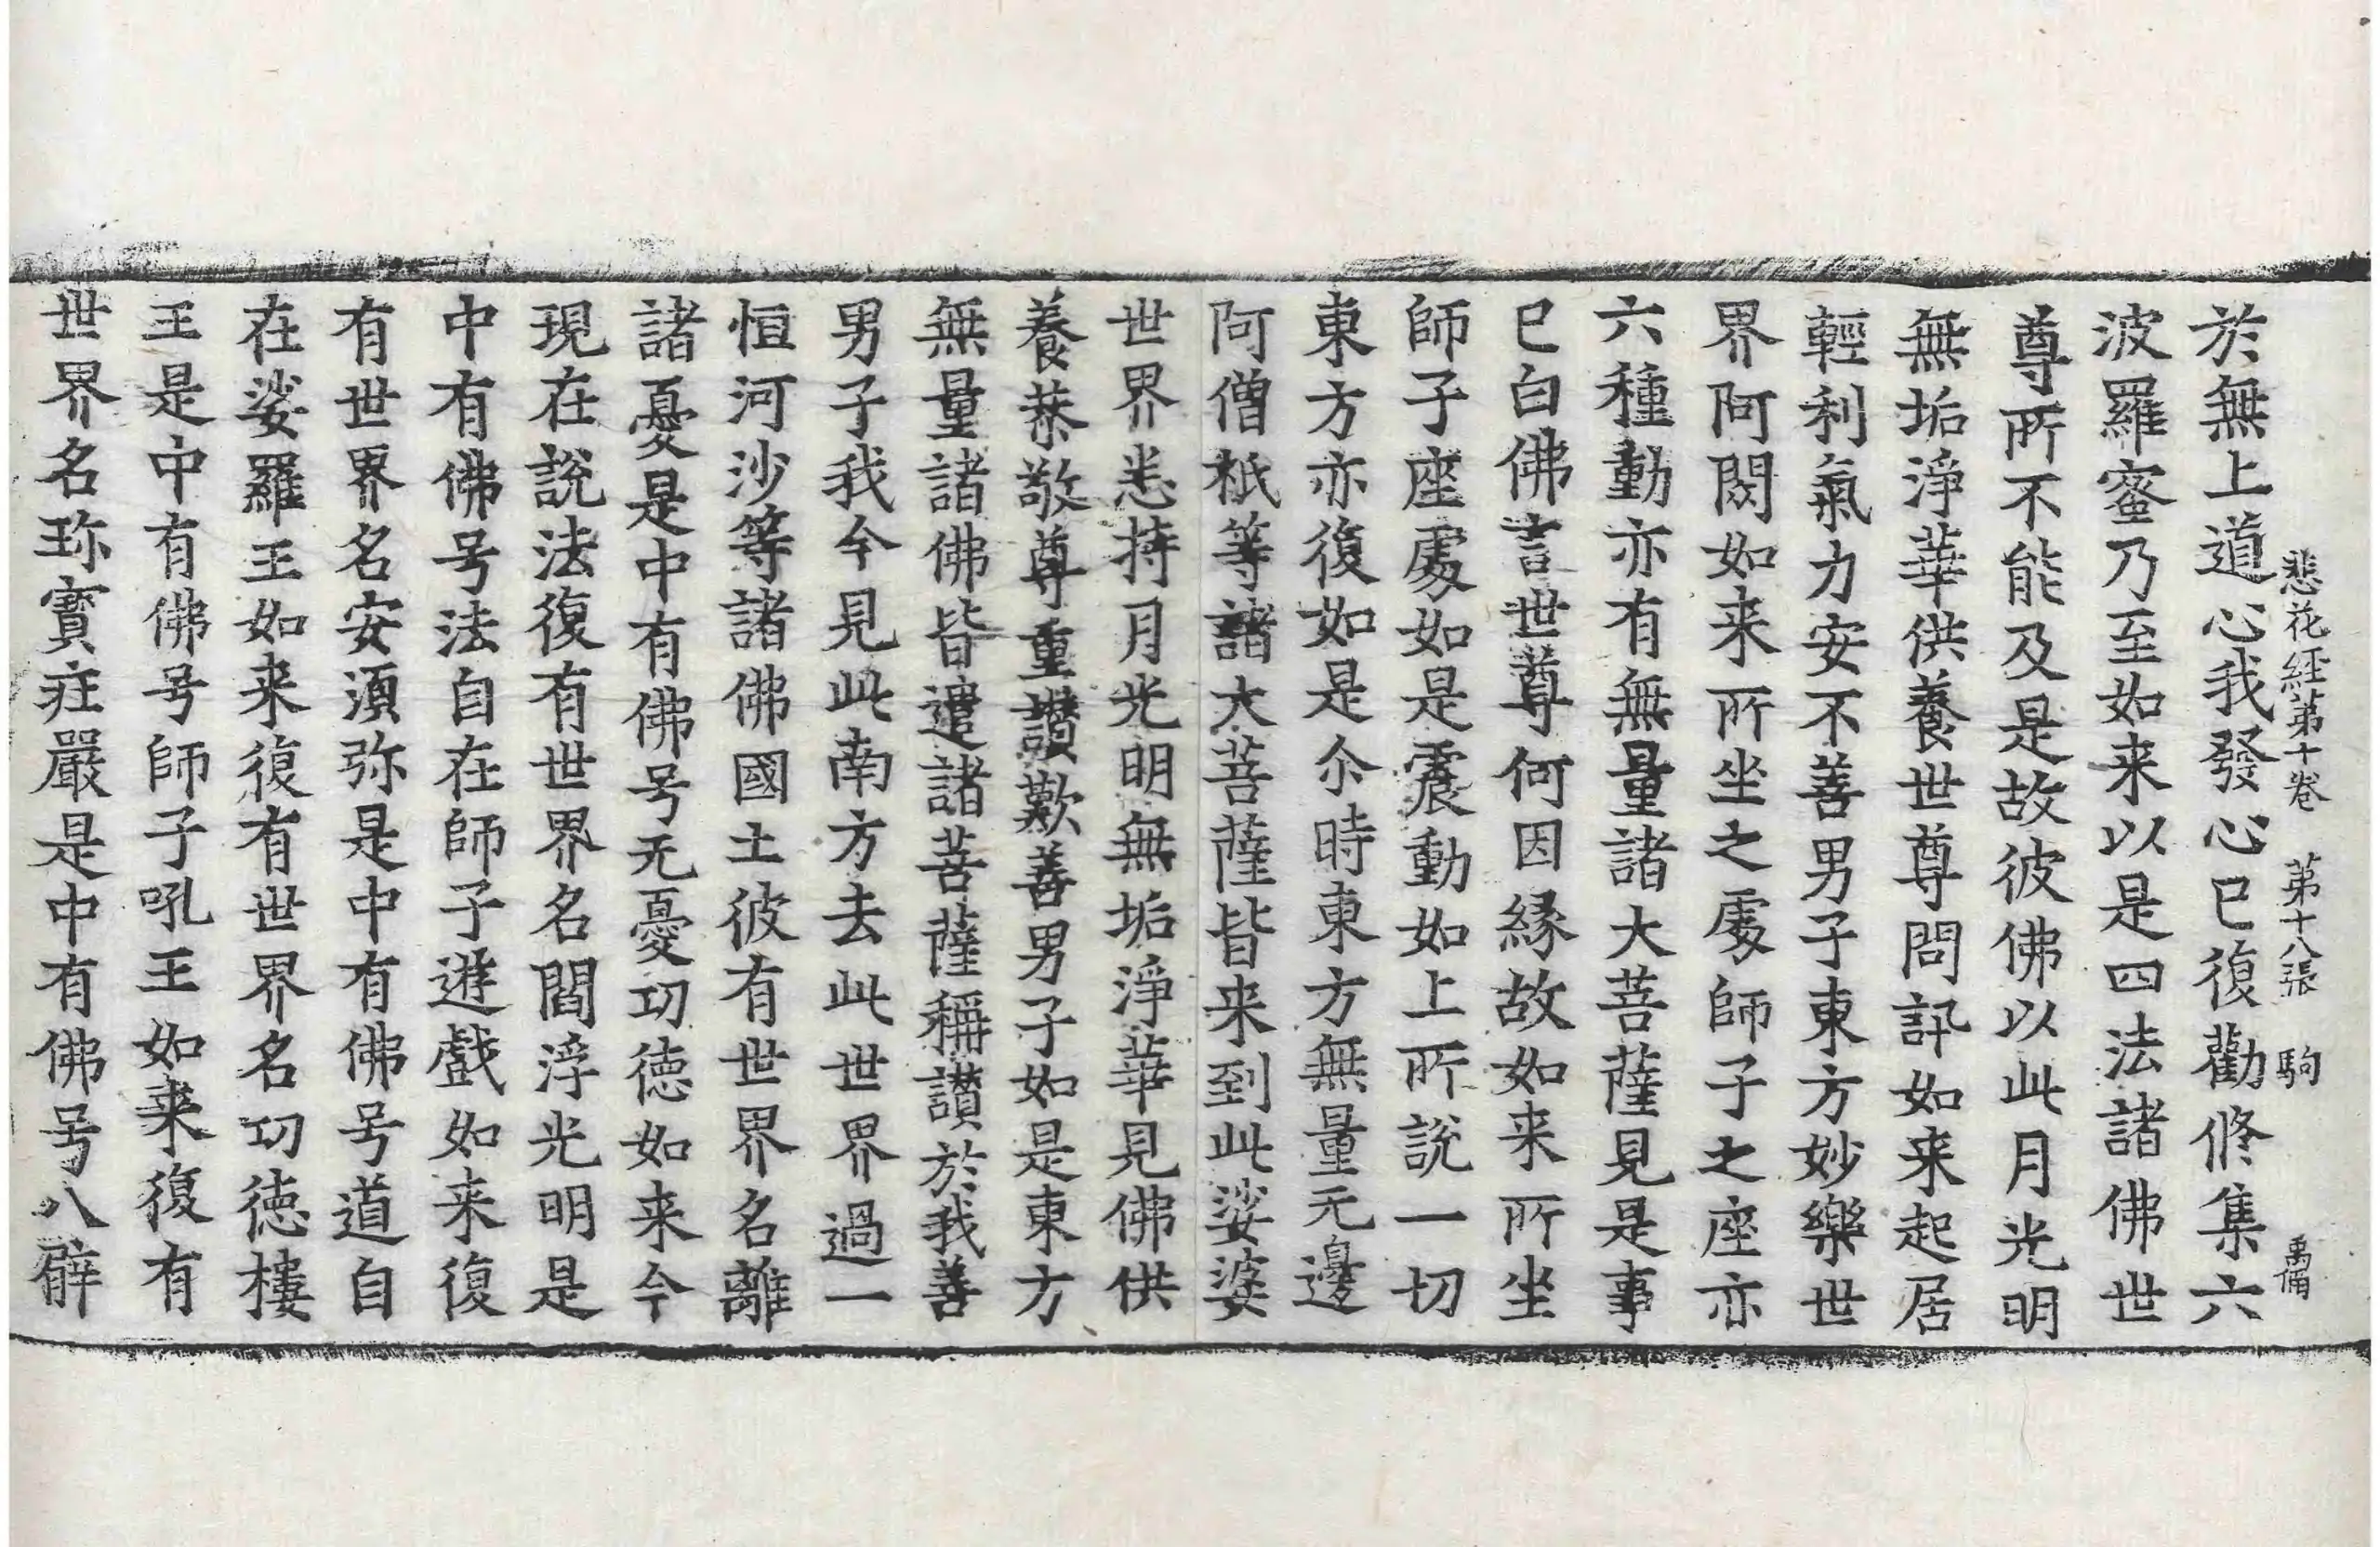 悲花経苐十卷 苐十八張 駒 禹偁
於無上道心我發心已復勸俢集六
波羅蜜乃至如来以是四法諸佛世
尊所不能及是故彼佛以此月光明
無垢淨華供養世尊問訊如来起居
輕利氣力安不善男子東方妙樂世
界阿閦如来所坐之處師子之座亦
六種動亦有無量諸大菩薩見是事
已白佛言世尊何因縁故如来所坐
師子座處如是震動如上所說一切
東方亦復如是尒時東方無量无邊
阿僧祇等諸大菩薩皆来到此娑婆
世界悉持月光明無垢淨華見佛供
養恭敬尊重讃歎善男子如是東方
無量諸佛皆遣諸菩薩稱讃於我善
男子我今見此南方去此世界過一
恒河沙等諸佛國土彼有世界名離
諸憂是中有佛号无憂功徳如来今
現在說法復有世界名閻浮光明是
中有佛号法自在師子遊戲如来復
有世界名安湏弥是中有佛号道自
在娑羅王如来復有世界名功徳樓
王是中有佛号師子吼王如来復有
世界名珎寳庄嚴是中有佛号八臂